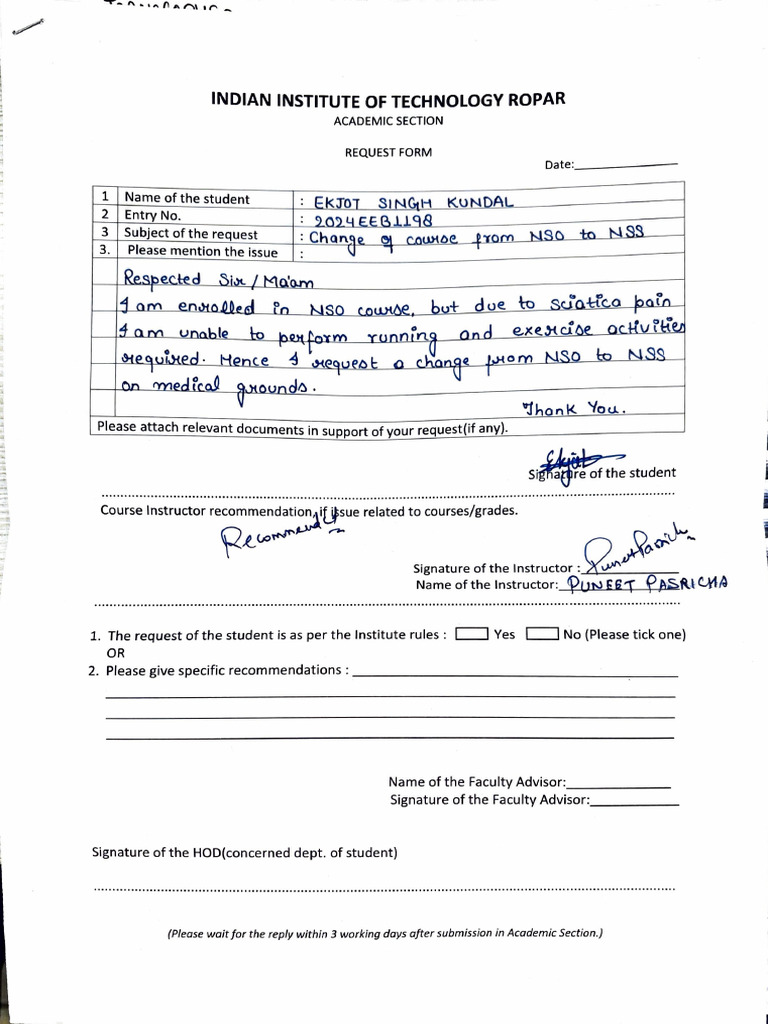 INDIAN INSTITUTE OF TECHNOLOGY ROPAR
ACADEMIC SECTION
REQUEST FORM
Date:
1 Name of the student : EKJOT SINGH KUNDAL
2 Entry No. : 2024EEB1198
3 Subject of the request : Change of course from NSO to NSS
3. Please mention the issue :
Respected Sir/Ma'am
I am enrolled in NSO course, but due to sciatica pain
I am unable to perform running and exercise activities
required. Hence I request a change from NSO to NSS
on medical grounds.
Thank You.
Please attach relevant documents in support of your request(if any).
Ekjot
Signature of the student
Course Instructor recommendation, if issue related to courses/grades.
Recommended
Signature of the Instructor : Puneet Pasricha
Name of the Instructor: PUNEET PASRICHA
1. The request of the student is as per the Institute rules : Yes No (Please tick one)
OR
2. Please give specific recommendations :
Name of the Faculty Advisor:
Signature of the Faculty Advisor:
Signature of the HOD(concerned dept. of student)
(Please wait for the reply within 3 working days after submission in Academic Section.)